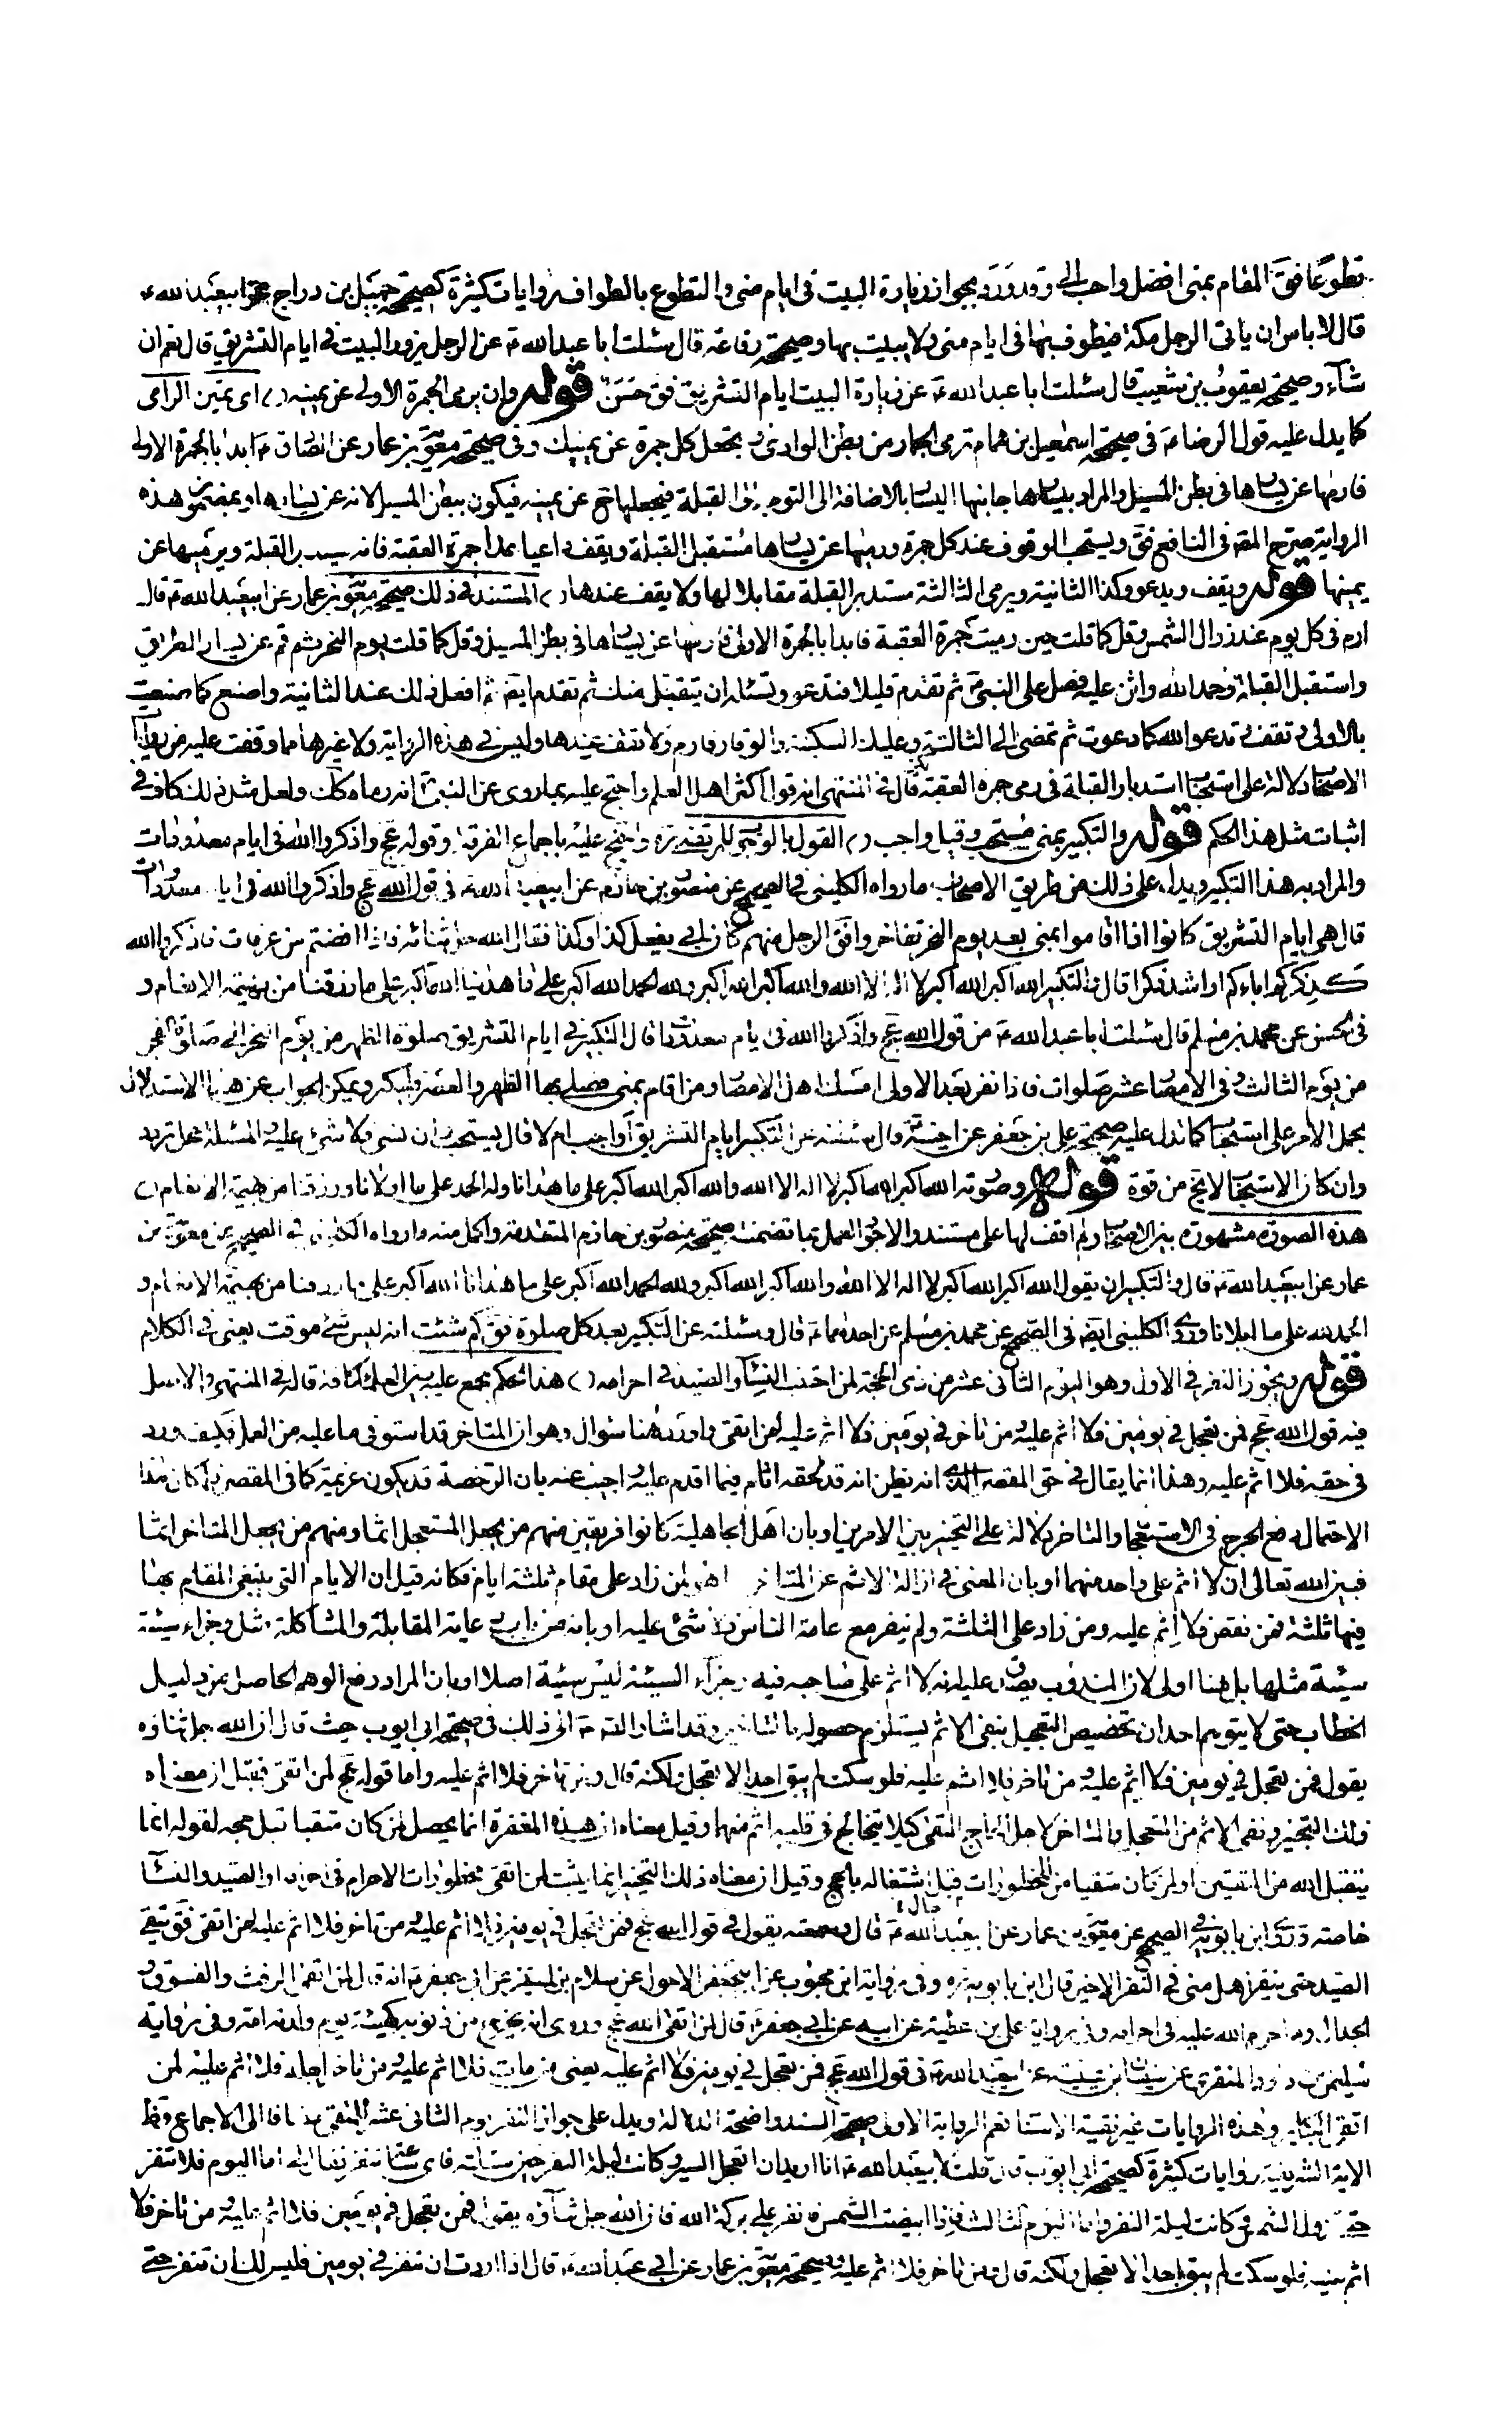 تطوعا فقَ المقام بمنى افضل واحب الى وقد ورد بجواز زيارة البيت فى ايام منى والتطوع بالطواف روايات كثيرة كصحيحة جميل بن دراج عن ابيعبد الله ع
قال لا باس ان ياتى الرجل مكة فيطوف بها فى ايام منى ولا يبيت بها وصحيحة رفاعة قال سئلت ابا عبد الله ع عن الرجل يزور البيت فى ايام التشريق قال نعم ان
شاء وصحيحة يعقوب بن شعيب قال سئلت ابا عبد الله ع عن زيارة البيت ايام التشريق فق حَسَنٌ قوله وان يرمى الجمرة الاولى عن يمينه اى يمين الرامى
كما يدل عليه قول الرضا ع فى صحيحة اسمعيل بن همام ترمى الجمار من بطن الوادى وتجعل كل جمرة عن يمينك وفى صحيحة معوية بن عمار عن الصادق ع ابدا بالجمرة الاولى
فارمها عن يسارها فى بطن المسيل والمراد بيسارها جانبها اليسار بالاضافة الى التوجه الى القبلة فيجعلها ح عن يمينه فيكون ببطن المسيل لانه عن يسارها وبمضمون هذه
الرواية صرح المصَ فى النافع فقَ ويستحب الوقوف عند كل جمرة ورميها عن يسارها مستقبل القبلة ويقف داعيا عدا جمرة العقبة فانه يستدبر القبلة ويرميها عن
يمينها قوله ويقف ويدعو وكذا الثانية ويرمى الثالثة مستدبر القبلة مقابلا لها ولا يقف عندها المستند فى ذلك صحيحة معوية بن عمار عن ابيعبد الله ع قال
ارم فى كل يوم عند زوال الشمس وقل كما قلت حين رميت جمرة العقبة فابدا بالجمرة الاولى فارمها عن يسارها فى بطن المسيل وقل كما قلت يوم النحر ثم قم عن يسار الطريق
واستقبل القبلة وحمد الله واثن عليه وصل على النبى ص ثم تقدم قليلا فتدعو وتسئله ان يتقبل منك ثم تقدم ايضا ثم افعل ذلك عند الثانية واصنع كما صنعت
بالاولى وتقف وتدعو الله كما دعوت ثم تمضى الى الثالثة وعليك السكينة والوقار فارم ولا تقف عندها وليس فى هذه الرواية ولا غيرها مما وقفت عليه من روايات
الاصحاب دلالة على استحباب استدبار القبلة فى رمى جمرة العقبة قال فى المنتهى انه قول اكثر اهل العلم واحتج عليه بما روى عن النبى ص انه رماها كذلك ولعل مثل ذلك كاف فى
اثبات مثل هذا الحكم قوله والتكبير بمنى مستحب وقيل واجب القول بالوجوب للمرتضى ره واحتج عليه باجماع الفرقة وقوله عج واذكروا الله فى ايام معدودات
والمراد به هذا التكبير ويدل على ذلك من طريق الاصحاب ما رواه الكلينى فى الصحيح عن منصور بن حازم عن ابيعبد الله ع فى قول الله عج واذكروا الله فى ايام معدودات
قال هى ايام التشريق كانوا اذا اقاموا بمنى بعد يوم النحر تفاخروا فق الرجل منهم كان ابى يفعل كذا وكذا فقال الله جل ثنائه فاذا افضتم من عرفات فاذكروا الله
كذكركم اباءكم او اشد ذكرا قال والتكبير الله اكبر الله اكبر لا اله الا الله والله اكبر الله اكبر ولله الحمد الله اكبر على ما هدينا الله اكبر على ما رزقنا من بهيمة الانعام و
فى الحسن عن محمد بن مسلم قال سئلت ابا عبد الله ع من قول الله عج واذكروا الله فى ايام معدودات قال التكبير فى ايام التشريق صلوة الظهر من يوم النحر الى صلوة الفجر
من يوم الثالث وفى الامصار عشر صلوات فاذا نفر بعد الاولى امسك اهل الامصار ومن اقام بمنى فصلى بها الظهر والعصر فليكبر ويمكن الجواب عن هذا الاستدلال
بحمل الامر على الاستحباب كما تدل عليه صحيحة على بن جعفر عن اخيه ع قال سئلته عن التكبير ايام التشريق اواجب ام لا قال يستحب وان نسى فلا شئ عليه والمسئلة محل تردد
وان كان الاستحباب لا يخ من قوة قوله وصورته الله اكبر الله اكبر لا اله الا الله والله اكبر الله اكبر على ما هدانا وله الحمد على ما اولانا ورزقنا من بهيمة الانعام
هذه الصورة مشهورة بين الاصحاب ولم اقف لها على مستند والاحوط العمل بما تضمنته صحيحة منصور بن حازم المتقدمة واكمل منه ما رواه الكلينى فى الصحيح عن معوية بن
عمار عن ابيعبد الله ع قال والتكبير ان يقول الله اكبر الله اكبر لا اله الا الله والله اكبر الله اكبر ولله الحمد الله اكبر على ما هدانا الله اكبر على ما رزقنا من بهيمة الانعام و
الحمد لله على ما ابلانا وروى الكلينى ايضا فى الصحيح عن محمد بن مسلم عن احدهما ع قال وسئلته عن التكبير بعد كل صلوة فق كم شئت انه ليس شئ موقت يعنى فى الكلام
قوله ويجوز النفر فى الاول وهو اليوم الثانى عشر من ذى الحجة لمن اجتنب النساء والصيد فى احرامه هذا الحكم مجمع عليه بين العلماء كافة قاله فى المنتهى والاصل
فيه قول الله عج فمن تعجل فى يومين فلا اثم عليه ومن تاخر فى يومين فلا اثم عليه لمن اتقى واورد هنا سؤال وهو ان المتاخر قد استوفى ما عليه من العمل فكيف ورد
فى حقه فلا اثم عليه وهذا انما يقال فى حق المقصر الذى انه يظن انه قد لحقه اثام فيما اقدم عليه اجيب عنه بان الرخصة قد يكون عزيمة كما فى المقصر فلمكان هذا
الاحتمال رفع الحرج فى الاستعجال والتاخر دلالة على التخيير بين الامرين او بان اهل الجاهلية كانوا فريقين منهم من يجعل المستعجل اثما ومنهم من يجعل المتاخر اثما
فبين الله تعالى ان لا اثم على واحد منهما او بان المعنى فى ازالة الاثم عن المتاخر انما هو لمن زاد على مقام ثلثة ايام فكانه قيل ان الايام التى ينبغى المقام بها
فيها ثلثة فمن نقص فلا اثم عليه ومن زاد على الثلثة ولم ينفر مع عامة الناس فلا شئ عليه او بانه من باب رعاية المقابلة والمشاكلة مثل وجزاء سيئة
سيئة مثلها بل هنا اولى لان المندوب يصدق عليه انه لا اثم على صاحبه فيه وجزاء السيئة ليس سيئة اصلا او بان المراد رفع الوهم الحاصل من دليل
الخطاب حتى لا يتوهم احد ان تخصيص التعجيل بنفى الاثم يستلزم حصوله بالتاخير وقد اشار الصَ ع الى ذلك فى صحيحة ابى ايوب حيث قال ان الله جل ثناؤه
يقول فمن تعجل فى يومين فلا اثم عليه ومن تاخر فلا اثم عليه فلو سكت لم يبق احد الا تعجل لكنه قال ومن تاخر فلا اثم عليه واما قوله عج لمن اتقى فقيل ان معناه
ذلك التخيير ونفى الاثم من المتعجل والمتاخر لاجل الحاج المتقى كيلا يتخالج فى قلبه اثم منهما وقيل معناه ان هذه المغفرة انما يحصل لمن كان متقيا قبل حجه لقوله انما
يتقبل الله من المتقين او لمن كان متقيا من المحظورات قبل اشتغاله بالحج وقيل ان معناه ذلك التخيير انما يثبت لمن اتقى محظورات الاحرام فى احرامه او الصيد والنساء
خاصة وروى ابن بابويه فى الصحيح عن معوية بن عمار عن ابيعبد الله ع قال وسمعته يقول فى قول الله عج فمن تعجل فى يومين فلا اثم عليه ومن تاخر فلا اثم عليه لمن اتقى فق يتقى
الصيد حتى ينفر اهل منى فى النفر الاخير قال ابن بابويه ره وفى رواية ابن محبوب عن ابيجعفر الاحول عن سلام بن المستنير عن ابى جعفر ع انه قال لمن اتقى الرفث والفسوق و
الجدال وما حرم الله عليه فى احرامه وفى رواية على بن عطية عن ابيه عن ابى جعفر ع قال لمن اتقى الله عج وروى انه يخرج من ذنوبه كهيئة يوم ولدته امه وفى رواية
سليمن بن داود المنقرى عن سفيان بن عيينة عن ابيعبد الله ع فى قول الله عج فمن تعجل فى يومين فلا اثم عليه يعنى من مات فلا اثم عليه ومن تاخر اجله فلا اثم عليه لمن
اتقى الكبائر وهذه الروايات غير نقية الاسناد نعم الرواية الاولى صحيحة السند واضحة الدلالة ويدل على جواز النفر يوم الثانى عشر للمتقى مضافا الى الاجماع وظ
الاية الشريفة روايات كثيرة كصحيحة ابى ايوب قال قلت لابيعبد الله ع انا نريد ان نتعجل السير وكانت ليلة النفر حين سئلته فاى ساعة ننفر فقال لى اما اليوم فلا تنفر
حتى تزول الشمس وكانت ليلة النفر واما اليوم الثالث فاذا ابيضت الشمس فانفر على بركة الله فان الله جل ثناؤه يقول فمن تعجل فى يومين فلا اثم عليه ومن تاخر فلا
اثم عليه فلو سكت لم يبق احد الا تعجل ولكنه قال ومن تاخر فلا اثم عليه وصحيحة معوية بن عمار عن ابى عبد الله ع قال اذا اردت ان تنفر فى يومين فليس لك ان تنفر حتى